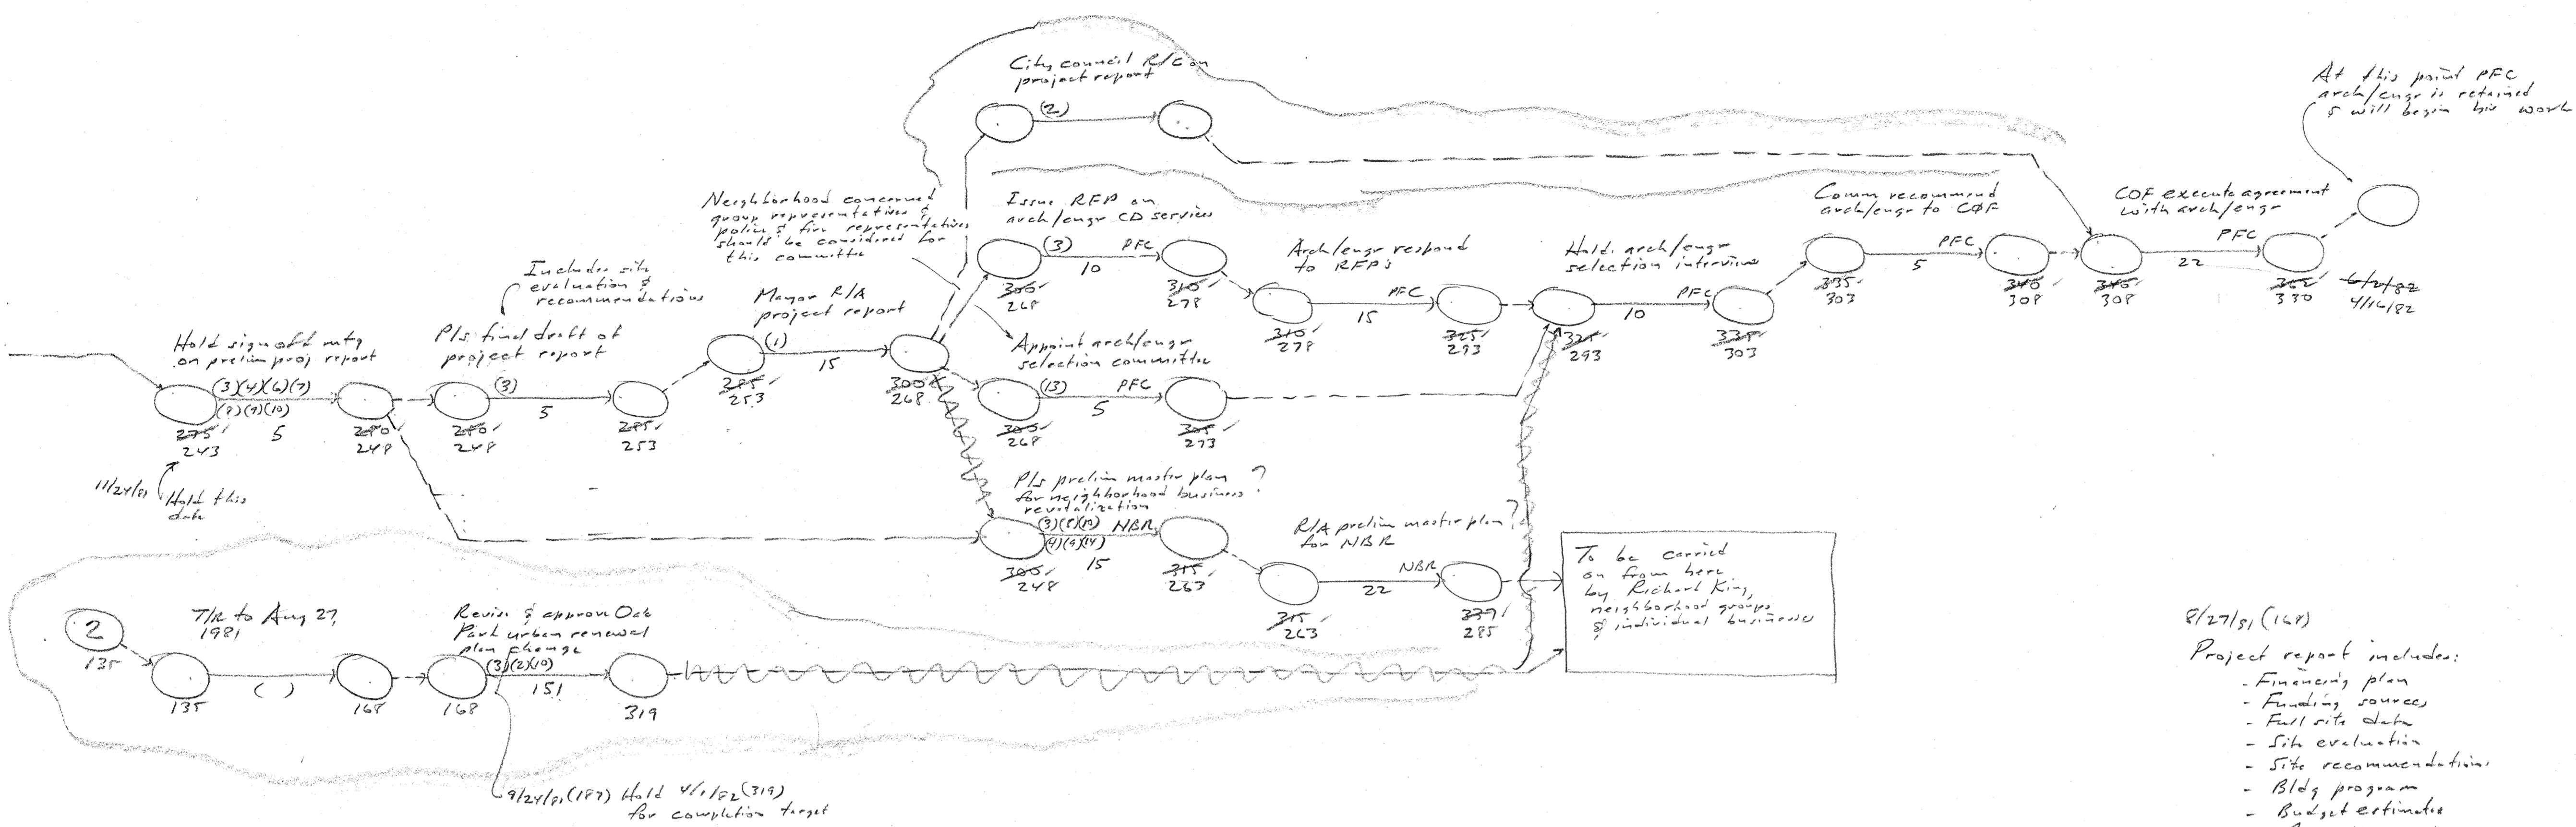 City council R/C on
project report
(2)
At this point PFC
arch/engr is retained
& will begin his work
Neighborhood concerned
group representatives &
police & fire representatives
should be considered for
this committee
Issue RFP on
arch/engr CD services
(3) PFC
10
300
268
310
278
Arch/engr respond
to RFP's
PFC
15
310
278
325
293
Hold arch/engr
selection interviews
PFC
10
325
293
335
303
Comm recommend
arch/engr to COF
PFC
5
335
303
340
308
COF execute agreement
with arch/engr
PFC
22
340
308
362
330
6/2/82
4/16/82
Includes site
evaluation &
recommendations
Hold sign off mtg
on prelim proj report
(3)(4)(6)(7)
(8)(9)(10)
5
275
243
280
248
11/24/81
Hold this
date
Pls final draft of
project report
(3)
5
280
248
285
253
Mayor R/A
project report
(1)
15
285
253
300
268
Appoint arch/engr
selection committee
(13) PFC
5
300
268
305
273
Pls prelim master plan ?
for neighborhood business
revitalization
(3)(8)(10) NBR
(4)(9)(14)
15
300
248
315
263
R/A prelim master plan ?
for NBR
NBR
22
315
263
337
285
To be carried
on from here
by Richard King,
neighborhood groups
& individual businesses
2
135
T/R to Aug 27,
1981
( )
135
168
Revise & approve Oak
Park urban renewal
plan change
(3)(2)(10)
151
168
319
9/24/81 (187) Hold 4/1/82 (319)
for completion target
8/27/81 (168)
Project report includes:
- Financing plan
- Funding sources
- Full site data
- Site evaluation
- Site recommendations
- Bldg program
- Budget estimates